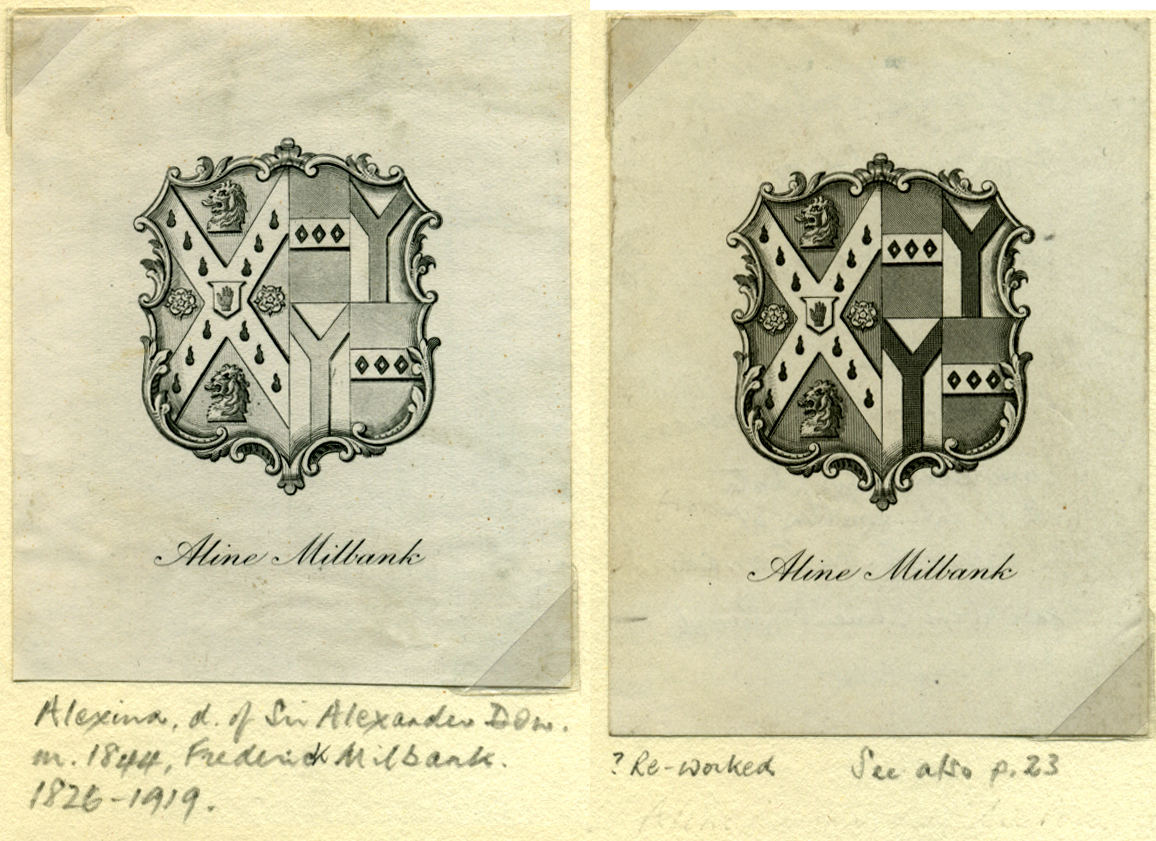 Aline Milbank
Alexina, d. of Sir Alexander Don.
m. 1844, Frederick Milbank.
1826-1919.
Aline Milbank
? Re-worked See also p. 23